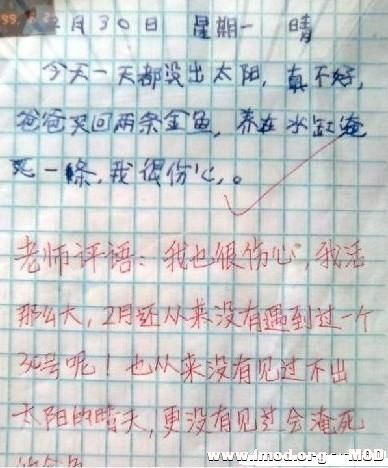 2月30日 星期一 晴
今天一天都没出太阳，真不好，
爸爸买回两条金鱼，养在水缸淹
死一條，我很伤心。
老师评语：我也很伤心，我活
那么大，2月还从来没有遇到过一个
30号呢！也从来没有见过不出
太阳的晴天，更没有见过会淹死
的金鱼
www.imod.org--MOD